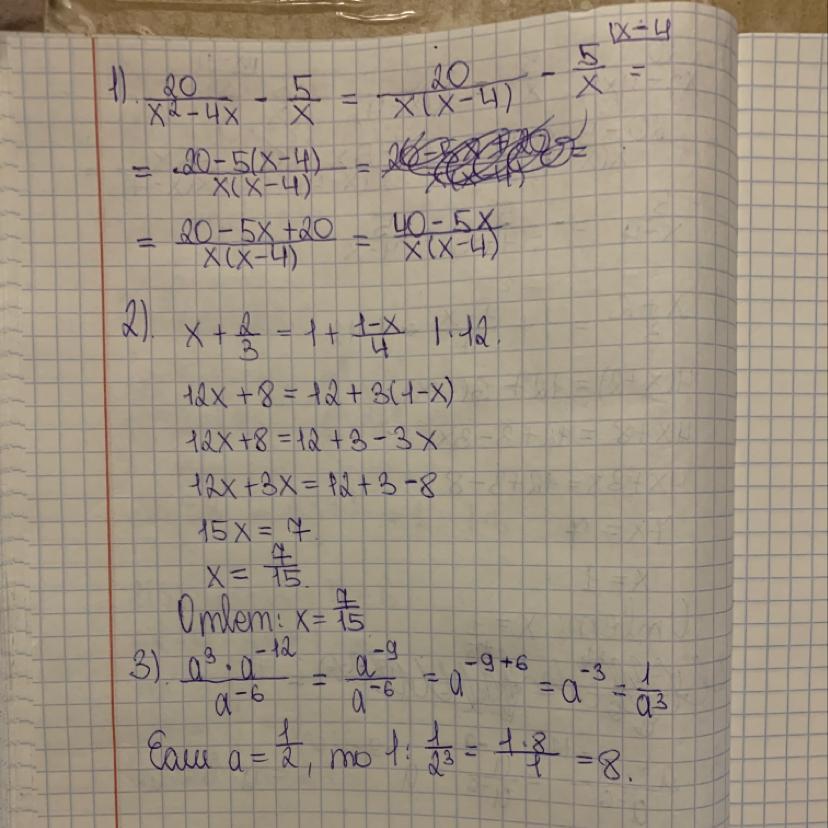 1) 20/(x²-4x) - 5/x = 20/(x(x-4)) - 5/x |x-4 =
= (20-5(x-4))/(x(x-4)) =
= (20-5x+20)/(x(x-4)) = (40-5x)/(x(x-4))
2) x + 2/3 = 1 + (1-x)/4 |·12.
12x+8=12+3(1-x)
12x+8=12+3-3x
12x+3x=12+3-8
15x=7
x= 7/15.
Ответ: x= 7/15
3) (a³·a⁻¹²)/a⁻⁶ = a⁻⁹/a⁻⁶ = a⁻⁹⁺⁶ = a⁻³ = 1/a³
Если a= 1/2, то 1: 1/2³ = (1·8)/1 =8.